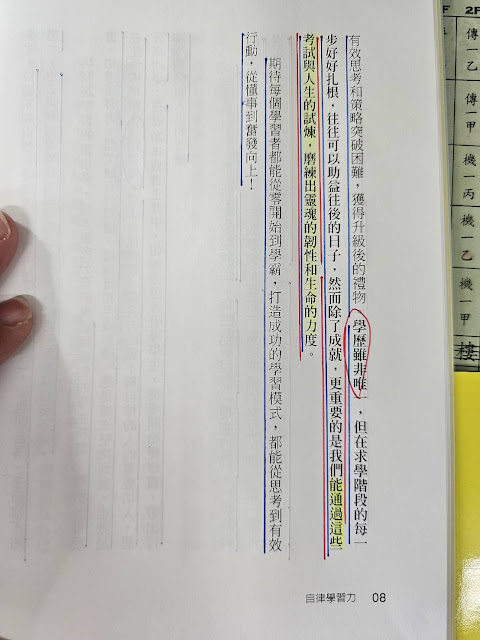 有效思考和策略突破困難，獲得升級後的禮物。學歷雖非唯一，但在求學階段的每一
步好好扎根，往往可以助益往後的日子，然而除了成就，更重要的是我們能通過這些
考試與人生的試煉，磨練出靈魂的韌性和生命的力度。
期待每個學習者都能從零開始到學霸，打造成功的學習模式，都能從思考到有效
行動，從懂事到奮發向上！
自律學習力 08
2F
傳一乙
傳一甲
機一丙
機一乙
機一甲
樓